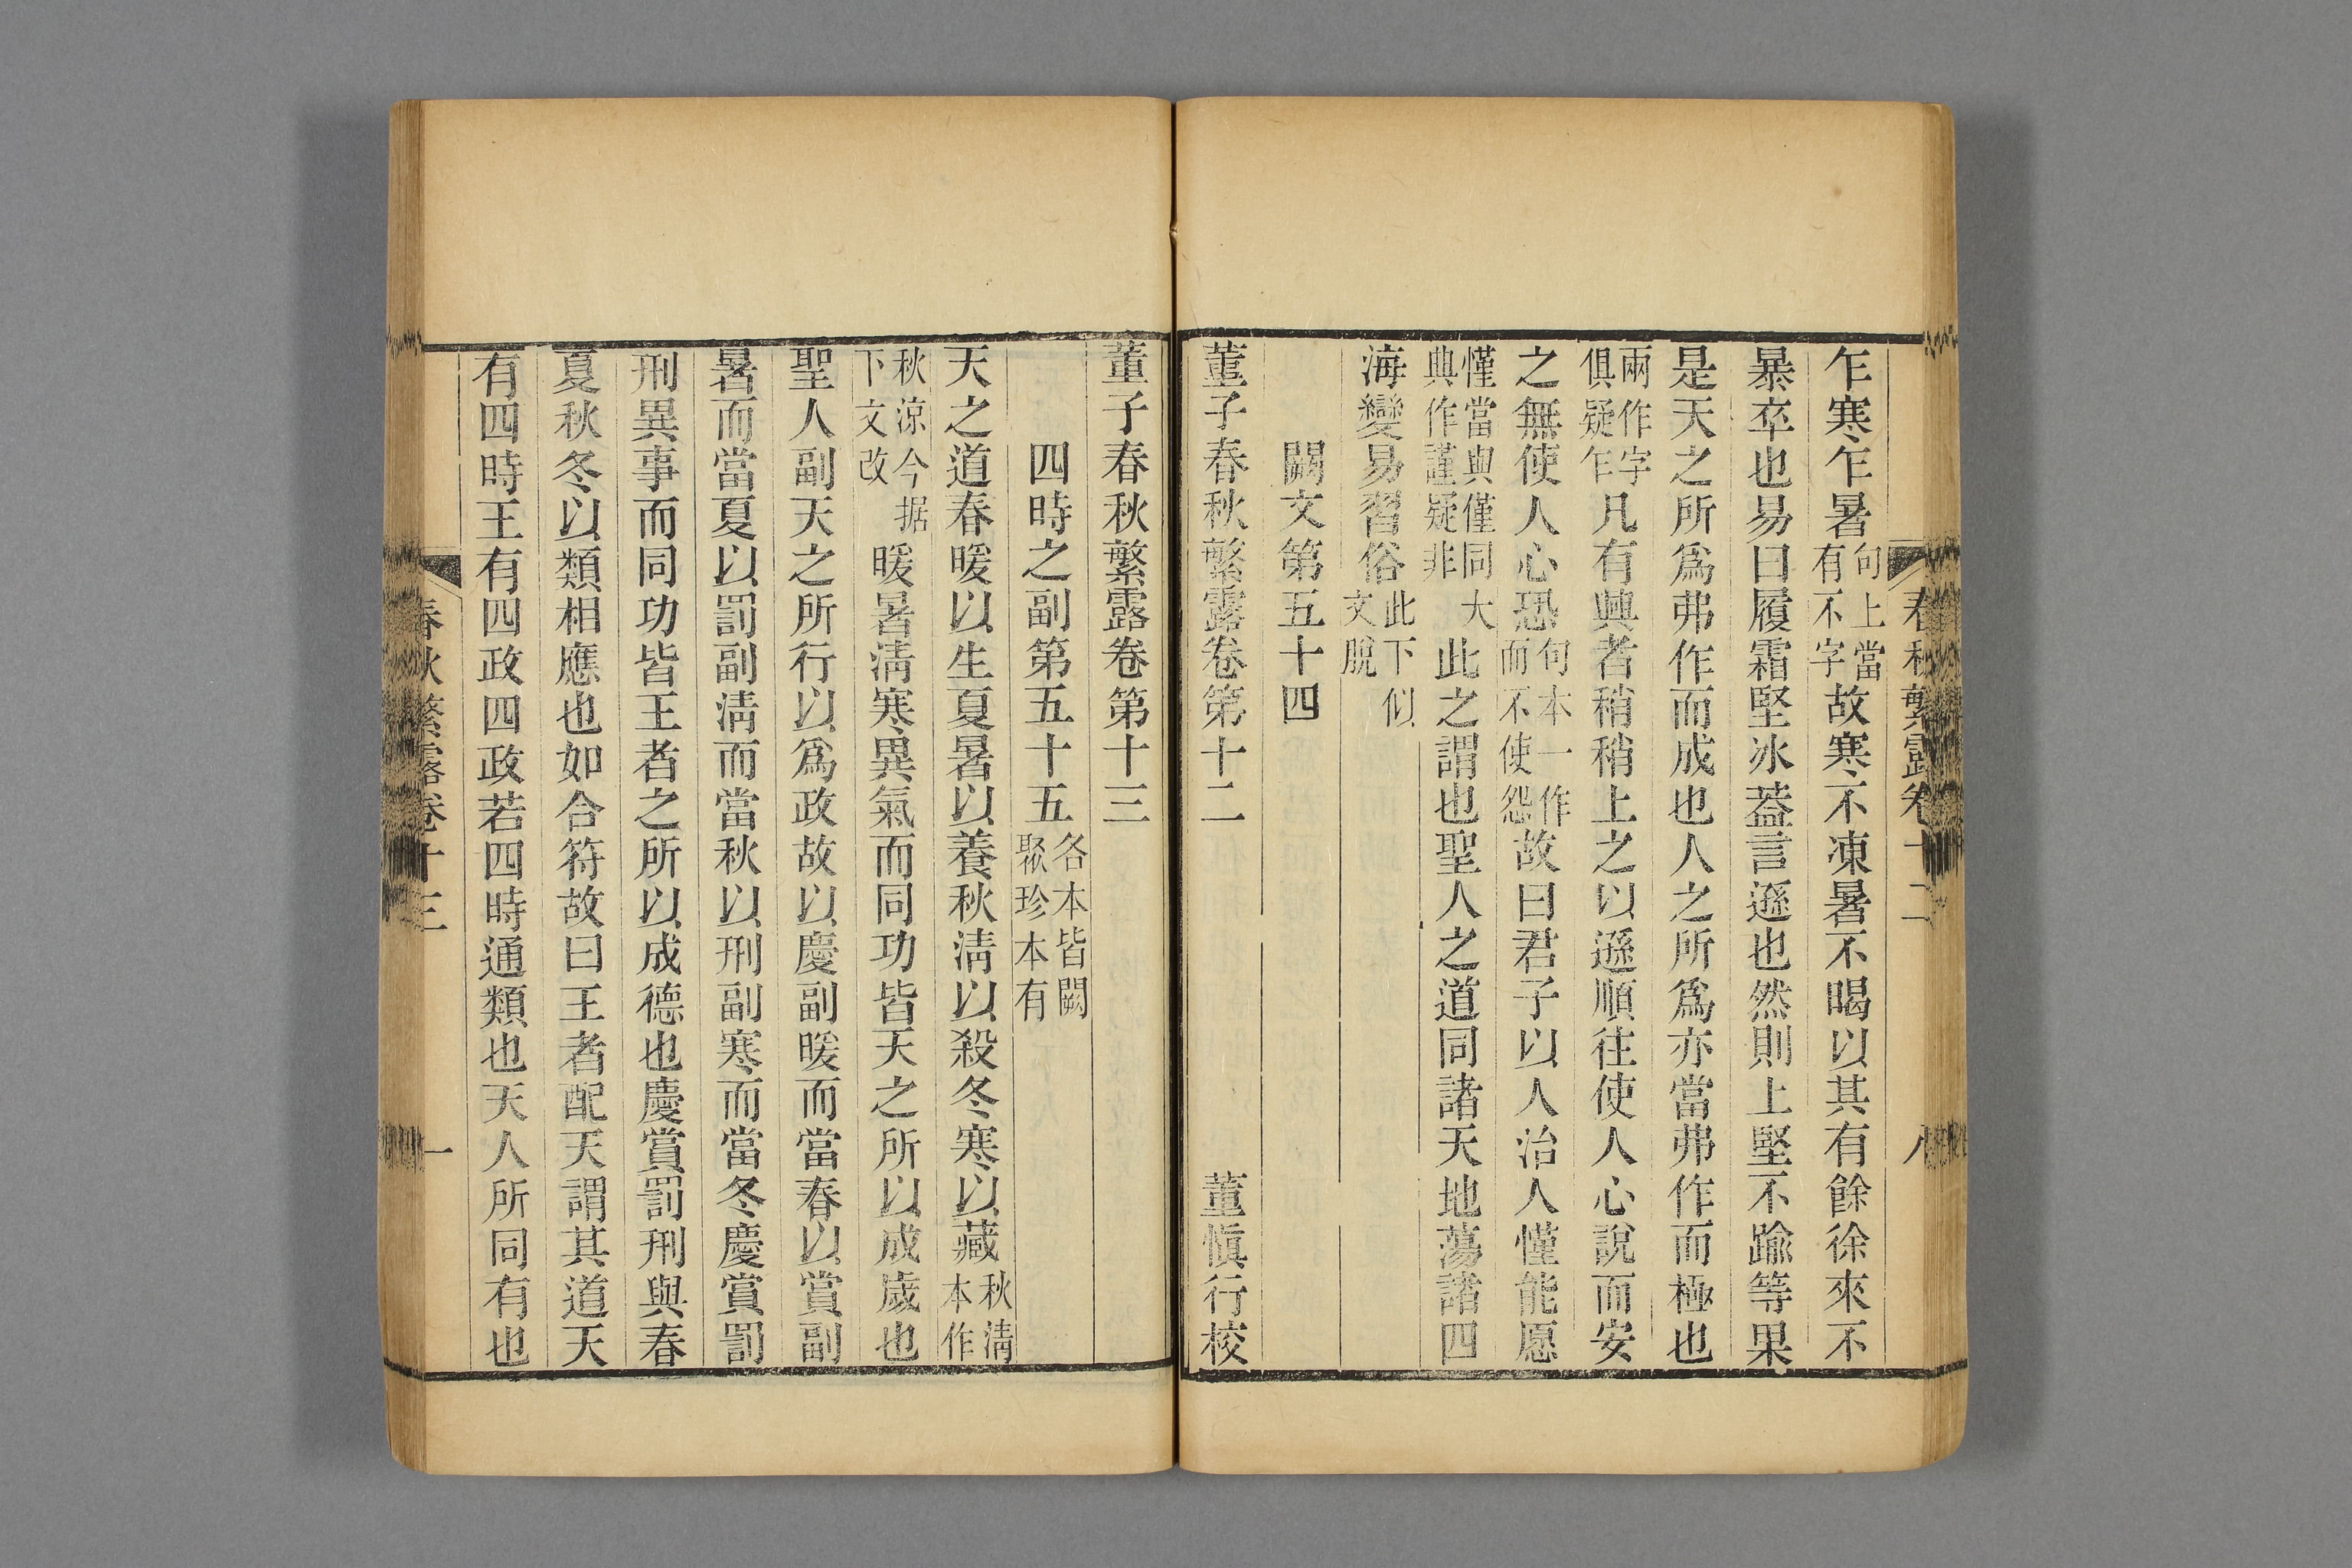 春秋繁露卷十二 八
乍寒乍暑句上當有不字故寒不凍暑不暍以其有餘徐來不
暴卒也易曰履霜堅冰葢言遜也然則上堅不踰等果
是天之所爲弗作而成也人之所爲亦當弗作而極也
兩作字俱疑乍凡有興者稍稍上之以遜順往使人心說而安
之無使人心恐句本一作而不使怨故曰君子以人治人慬能愿
慬當與僅同大典作謹疑非此之謂也聖人之道同諸天地蕩諸四
海變易習俗此下似文脫
闕文第五十四
董子春秋繁露卷第十二 董愼行校
董子春秋繁露卷第十三
四時之副第五十五各本皆闕聚珍本有
天之道春暖以生夏暑以養秋淸以殺冬寒以藏秋淸本作
秋涼今据下文改暖暑淸寒異氣而同功皆天之所以成歲也
聖人副天之所行以爲政故以慶副暖而當春以賞副
暑而當夏以罰副淸而當秋以刑副寒而當冬慶賞罰
刑異事而同功皆王者之所以成德也慶賞罰刑與春
夏秋冬以類相應也如合符故曰王者配天謂其道天
有四時王有四政四政若四時通類也天人所同有也
春秋繁露卷十三 一